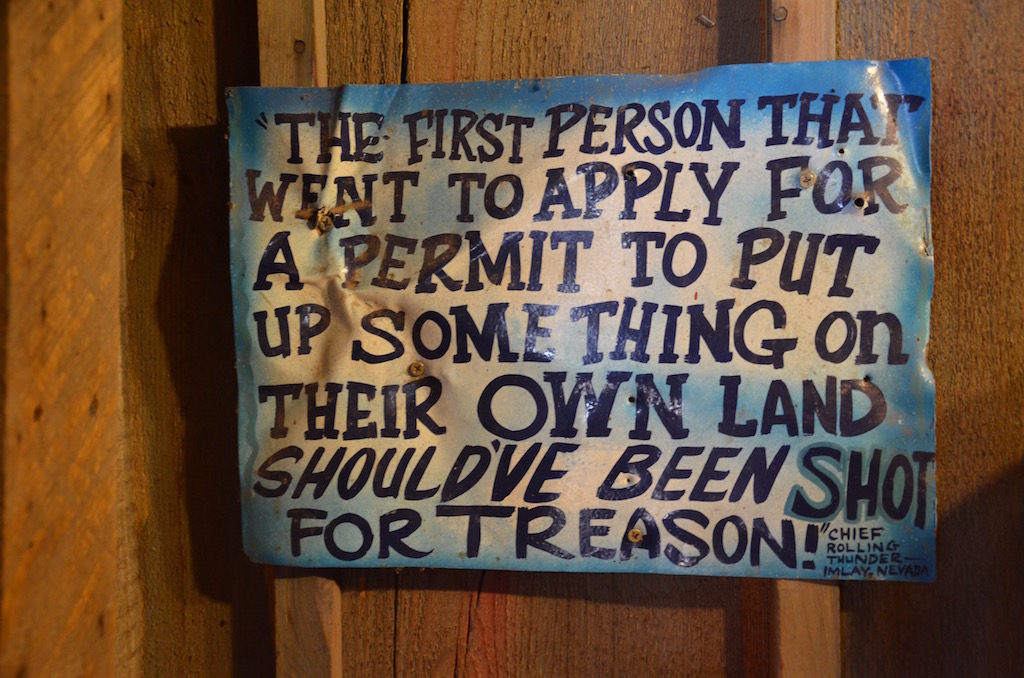 "THE FIRST PERSON THAT
WENT TO APPLY FOR
A PERMIT TO PUT
UP SOMETHING On
THEIR OWN LAND
SHOULD'VE BEEN SHOT
FOR TREASON!"
CHIEF
ROLLING
THUNDER—
IMLAY, NEVADA